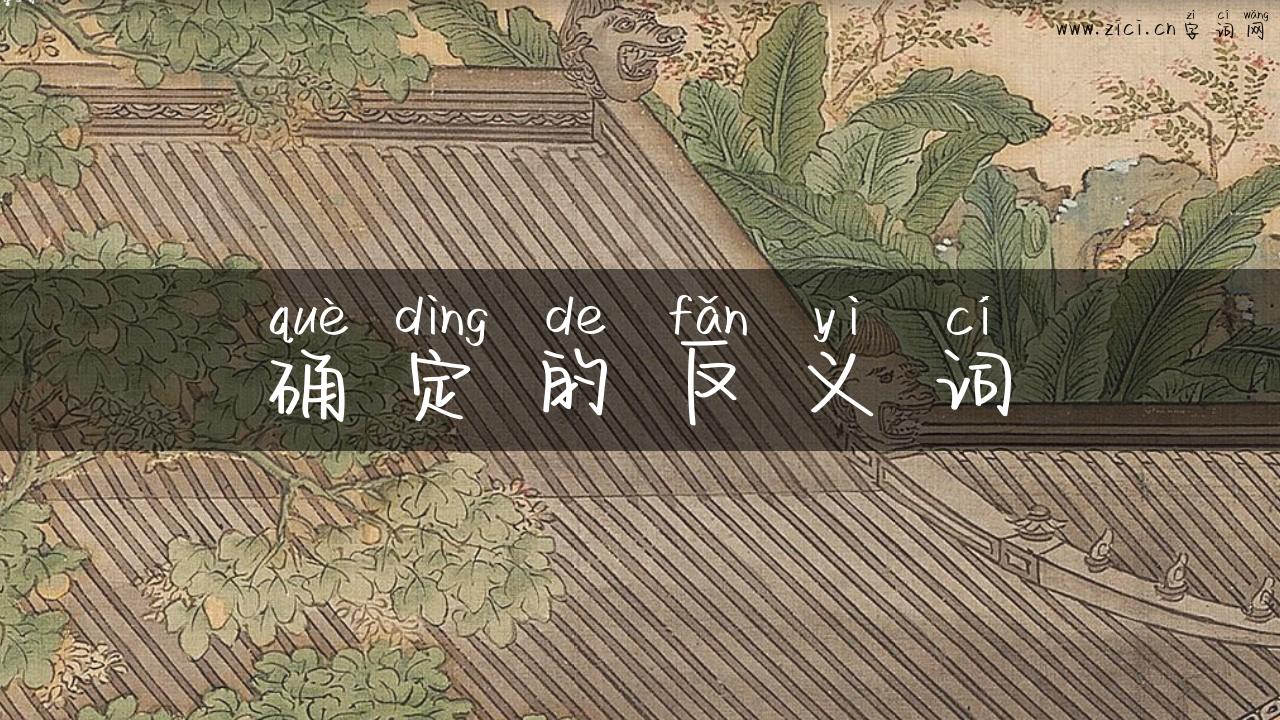 zì cí wǎng
www.zici.cn 字词网
què dìng de fǎn yì cí
确定的反义词